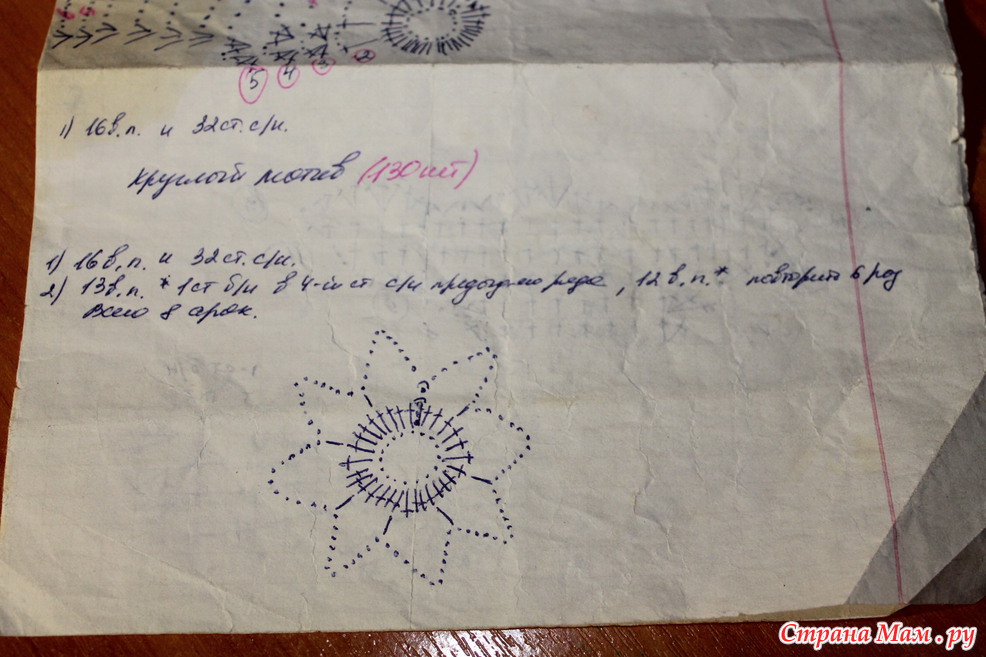 5 4 3 2
1) 16 в.п. и 32 ст. с/н.
круглый мотив (130 шт)
1) 16 в.п. и 32 ст. с/н.
2) 13 в.п. * 1 ст б/н в 4-й ст с/н предыдущего ряда, 12 в.п. * повторить 6 раз
Всего 8 арок.
Страна Мам.ру